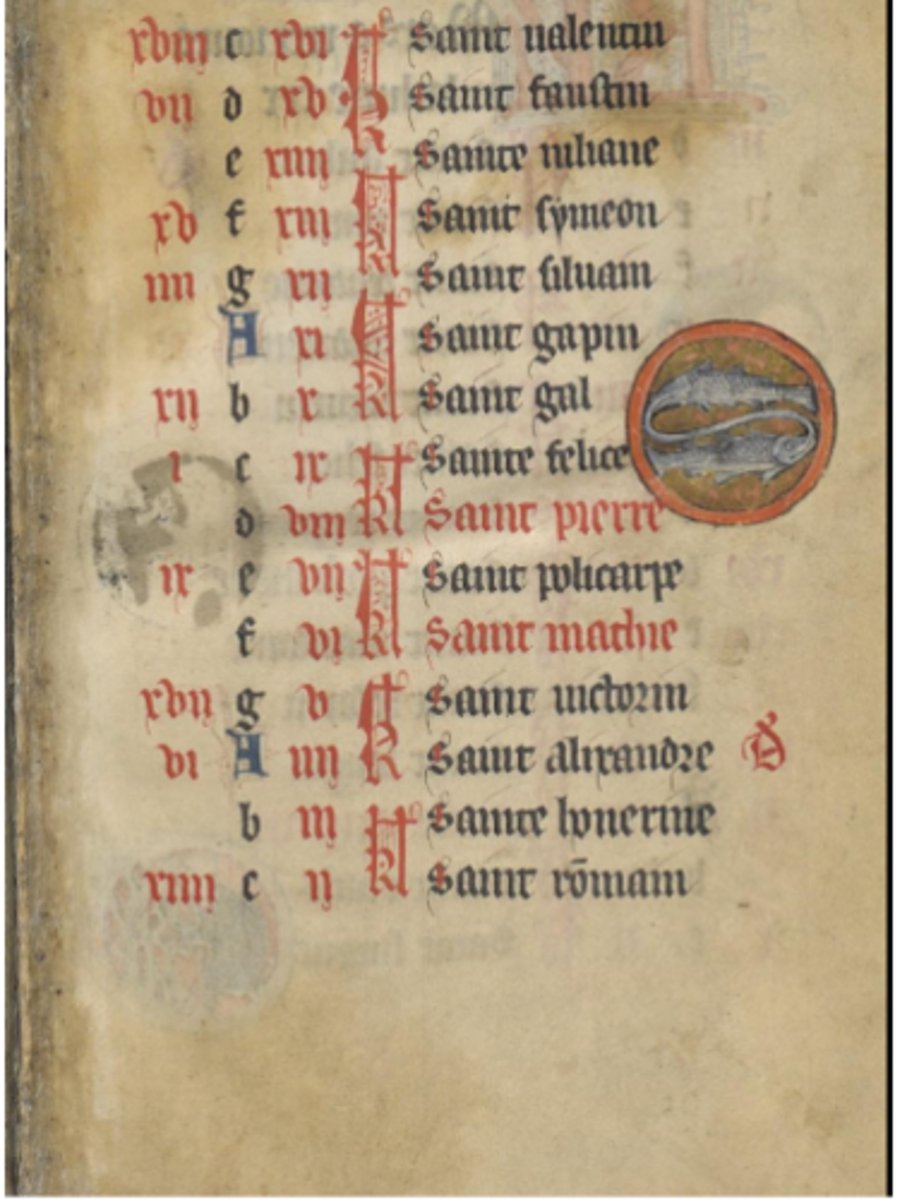 xviii c xvi kl Saint valentin
vii d xv kl Saint faustin
e xiiii Sainte iuliane
xv f xiii kl Saint symeon
iiii g xii Saint siluain
A xi kl Saint gapin
xii b x kl Saint gal
i c ix Sainte felice
d viii kl Saint pierre
ix e vii Saint policarpe
f vi kl Saint mathie
xvii g v Saint uictorin
vi A iiii kl Saint alixandre
b iii Sainte honerine
xiiii c ii kl Saint rōmain